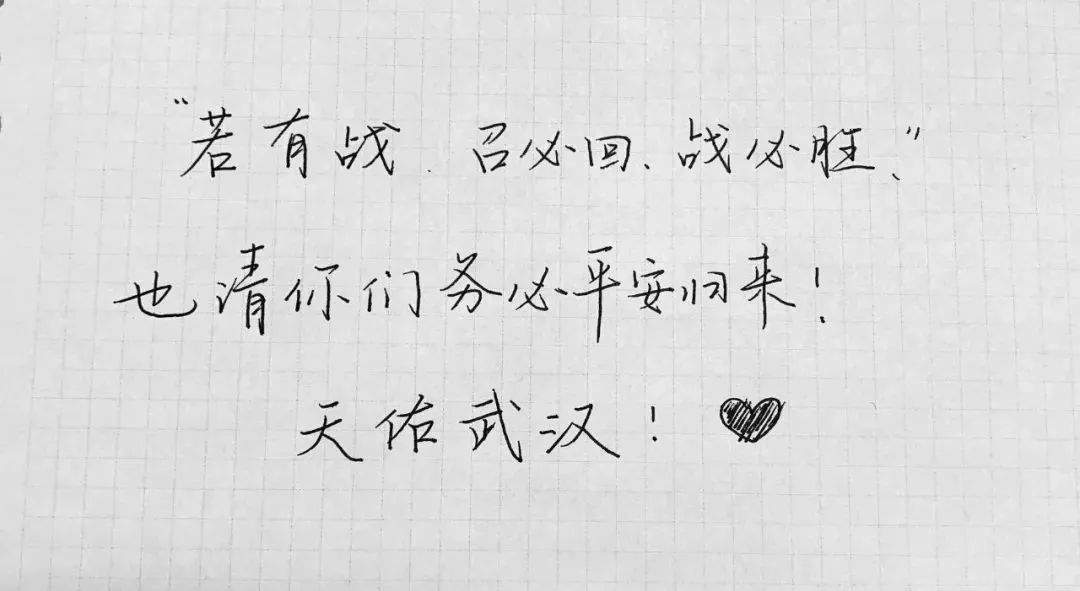 “若有战、召必回、战必胜、”
也请你们务必平安归来！
天佑武汉！